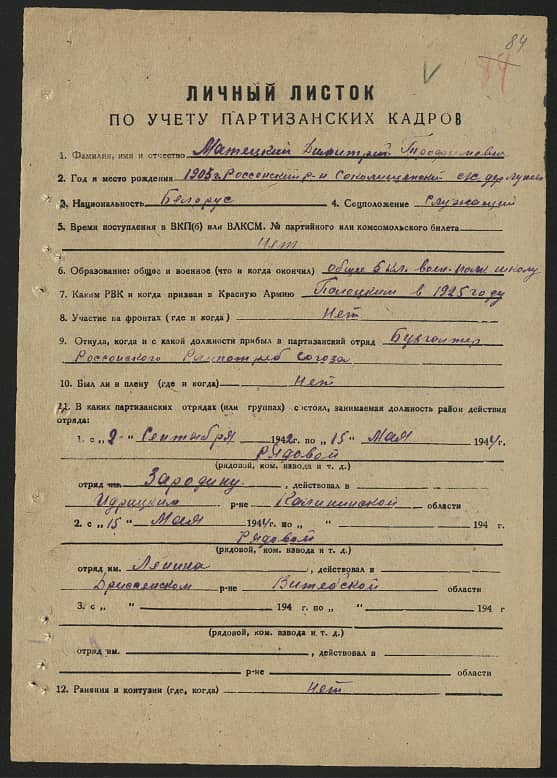 84
84
ЛИЧНЫЙ ЛИСТОК
ПО УЧЕТУ ПАРТИЗАНСКИХ КАДРОВ
1. Фамилия, имя и отчество Матецкий Димитрий
2. Год и место рождения 1903 г. Россонский р-н Соколищенский с/с дер.
3. Национальность Белорус 4. Соцположение Служащий
5. Время поступления в ВКП(б) или ВЛКСМ. № партийного или комсомольского билета
Нет
6. Образование: общее и военное (что и когда окончил) общее 5 кл. школу
7. Каким РВК и когда призван в Красную Армию Полоцким в 1925 году
8. Участие на фронтах (где и когда) Нет
9. Откуда, когда и с какой должности прибыл в партизанский отряд Бухгалтер
Россонского союза
10. Был ли в плену (где и когда) Нет
11. В каких партизанских отрядах (или группах) состоял, занимаемая должность район действия
отряда:
1. с „2 “ Сентября 1942 г. по „15 “ Мая 1944 г.
Рядовой
(рядовой, ком. взвода и т. д.)
отряд им. , действовал в
Идрицким р-не Калининской области
2. с „15 “ Мая 1944 г. по „ “ 194 г.
Рядовой
(рядовой, ком. взвода и т. д.)
отряд им. Ленина , действовал в
р-не Витебской области
3. с „ “ 194 г. по „ “ 194 г
(рядовой, ком. взвода и т. д.)
отряд им. , действовал в
р-не области
12. Ранения и контузии (где, когда) Нет